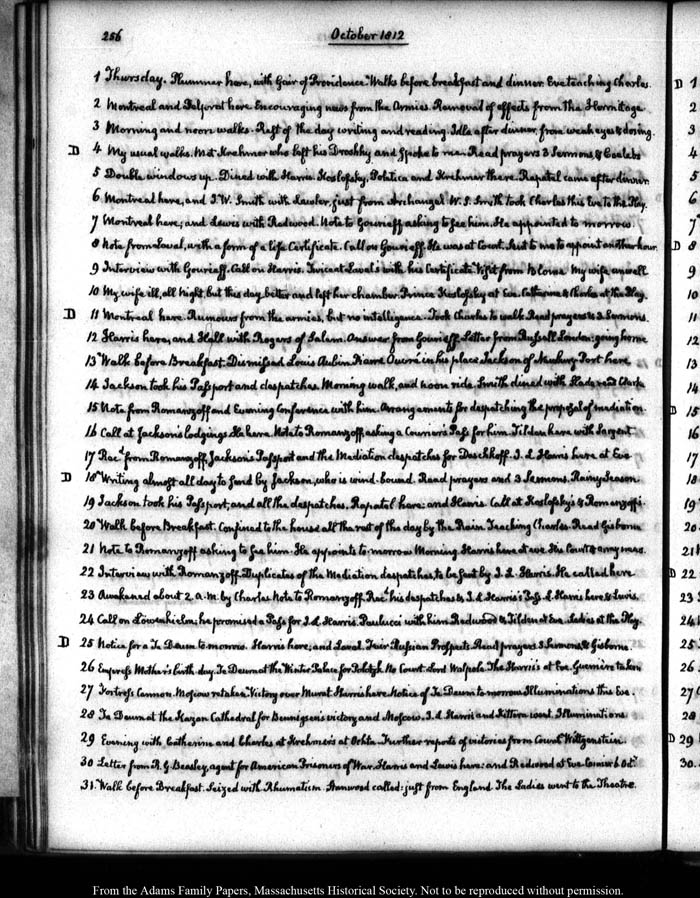 256
October 1812
1 Thursday. Plummer here, with Gair of Providence. Walks before breakfast and dinner. Eve teaching Charles.
2 Montreal and Delforal here. Encouraging news from the Armies. Removal of effects from the Hermitage
3 Morning and noon walks. Rest of the day writing and reading. Idle after dinner, from weak eyes & dozing.
D 4 My usual walks. Met Krehmer who left his Droshky and spoke to me. Read prayers 3 Sermons, & Cœlebs
5 Double windows up. Dined with Harris. Koslofsky, Politica and Krehmer there. Rapatel came after dinner
6 Montreal here, and J. W. Smith with Lawler, just from Archangel. W. S. Smith took Charles this Eve to the Play.
7 Montreal here; and Lewis with Redwood. Note to Gourieff asking to see him. He appointed to morrow.
8 Note from Laval, with a form of a life Certificate. Call on Gourieff. He was at Court. Sent to me to appoint another hour.
9 Interview with Gourieff. Call on Harris. Twice at Laval's with his Certificate. Visit from Blome. My wife unwell
10 My wife ill, all Night, but this day better and left her chamber. Prince Koslofsky at Eve. Catherine & Charles at the Play.
D 11 Montreal here. Rumours from the armies, but no intelligence. Took Charles to walk. Read prayers & 3 Sermons.
12 Harris here, and Hall with Rogers of Salem. Answer from Gourieff. Letter from Russell London: going home
13 Walk before Breakfast. Dismissed Louis Aubin. Pierre in his place. Jackson of Newbury Port here
14 Jackson took his Passport and despatches. Morning walk, and noon ride. Smith dined with Slade and Clark
15 Note from Romanzoff and Evening Conference with him. Arrangements for despatching the proposal of mediation
16 Call at Jackson's lodgings. He here. Note to Romanzoff, asking a Courier's Pass for him. Tilden here with Sargent
17 Rec.d from Romanzoff, Jackson's Passport and the Mediation despatches for Daschkoff. J. L. Harris here at Eve
D 18 Writing almost all day to send by Jackson, who is wind-bound. Read prayers and 3 Sermons. Rainy Season
19 Jackson took his Passport, and all the despatches. Rapatel here: and Harris. Call at Koslofsky's & Romanzoff's
20 Walk before Breakfast. Confined to the house all the rest of the day by the Rain. Teaching Charles. Read Gisborne
21 Note to Romanzoff asking to see him. He appoints to-morrow Morning. Harris here at eve. His Court & army news.
22 Interview with Romanzoff. Duplicates of the Mediation despatches, to be sent by J. L. Harris. He called here
23 Awakened about 2. A.M. by Charles. Note to Romanzoff. Rec.d his despatches & J. L. Harris's Pass. L. Harris here & Lewis.
24 Call on Löwenhielm; he promised a Pass for J. L. Harris. Paulucci with him. Redwood & Tilden at Eve. Ladies at the Play.
D 25 Notice for a Te Deum to-morrow. Harris here; and Laval. Fair Russian Prospects. Read prayers 3 Sermons, & Gisborne.
26 Empress Mother's birth-day. Te Deum at the Winter Palace for Polotzk. No Court. Lord Walpole. The Harris's at Eve. Guerrière taken
27 Fortress Cannon. Moscow retaken. Victory over Murat. Harris here. Notice of Te Deum to-morrow. Illuminations this Eve.
28 Te Deum at the Kazan Cathedral for Bennigsen's victory and Moscow. J. L. Harris and Kitten went. Illuminations
29 Evening with Catherine and Charles at Krehmer's at Ochta. Further reports of victories from Count Wittgenstein.
30 Letter from R. G. Beasley, agent for American Prisoners of War. Harris and Lewis here: and Redwood at Eve.
31. Walk before Breakfast. Seized with Rhumatism. Stanwood called: just from England. The Ladies went to the Theatre.
From the Adams Family Papers, Massachusetts Historical Society. Not to be reproduced without permission.